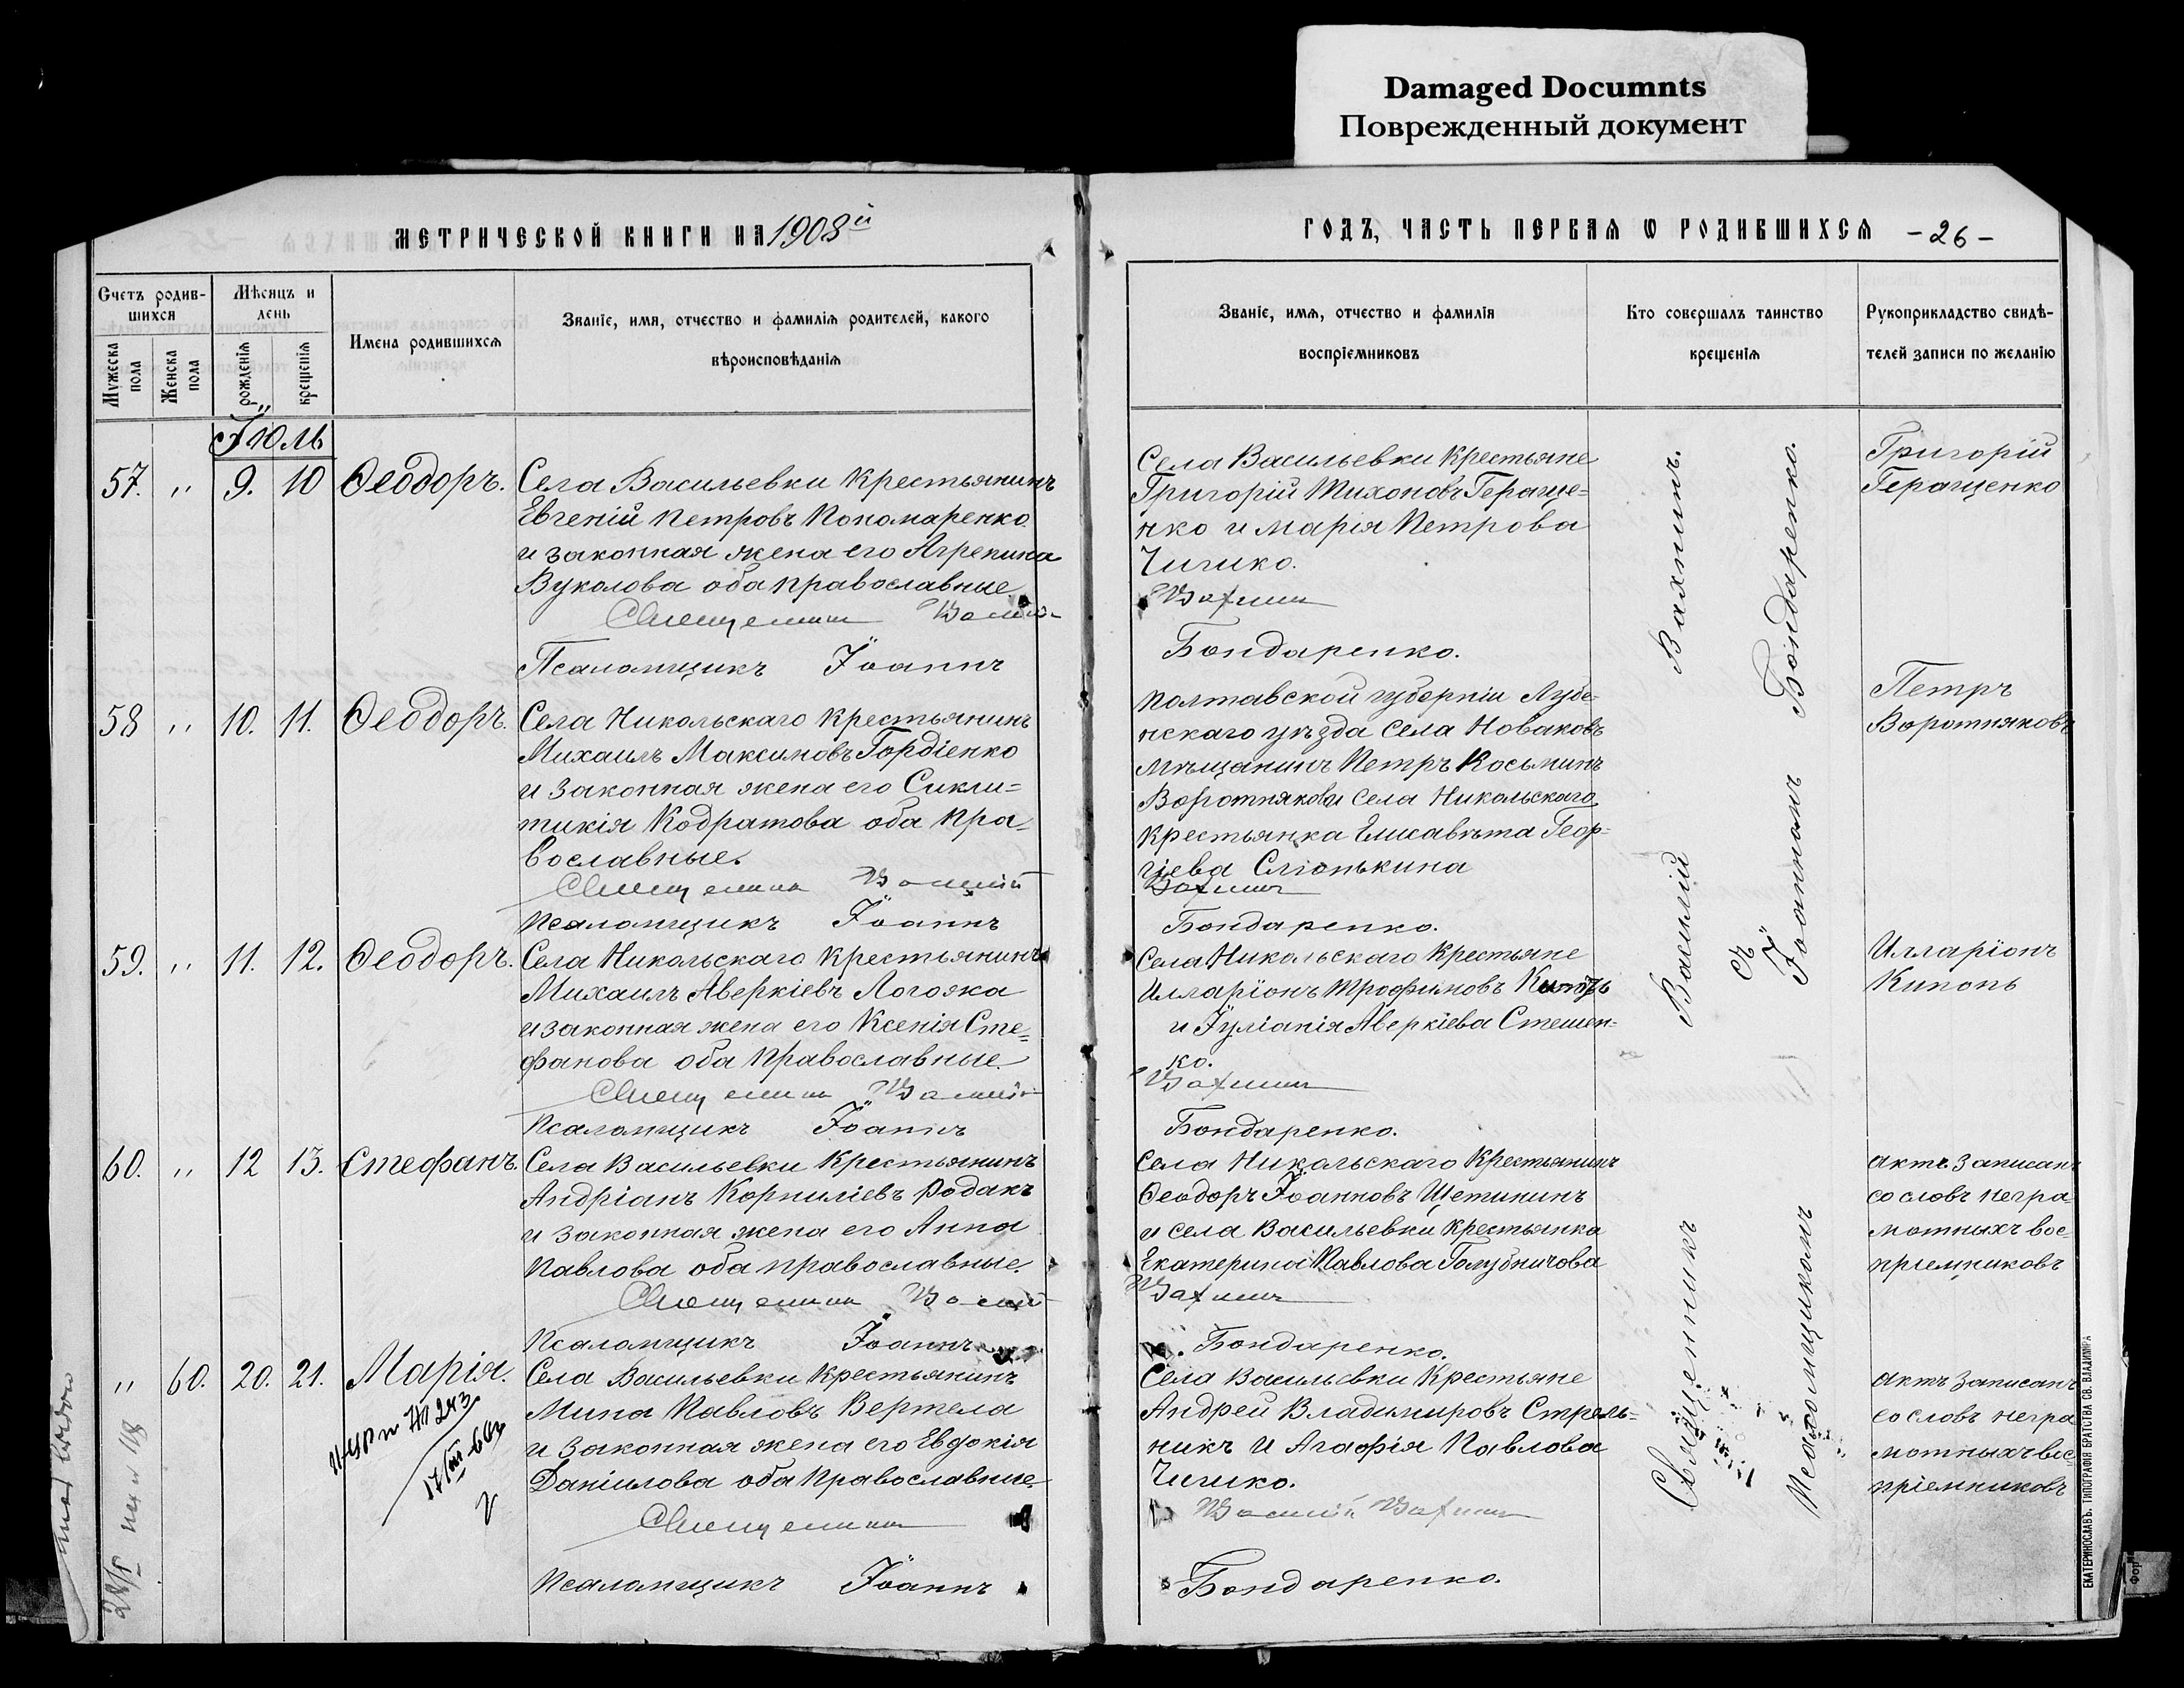 Damaged Documnts
Поврежденный документ
МЕТРИЧЕСКОЙ КНИГИ НА 1908й
ГОДЪ, ЧАСТЬ ПЕРВАЯ Ѡ РОДИВШИХСЯ
- 26 -
Счетъ родив-
шихся
Мужеска
пола
Женска
пола
Мѣсяцъ и
день
рожденія
крещенія
Имена родившихся
Званіе, имя, отчество и фамилія родителей, какого
вѣроисповѣданія
Званіе, имя, отчество и фамилія
воспріемниковъ
Кто совершалъ таинство
крещенія
Рукоприкладство свидѣ-
телей записи по желанію
Іюль
57. " 9. 10 Ѳеодоръ.
Села Васильевки крестьянинъ
Евгеній Петровъ Пономаренко
и законная жена его Агрепина
Вуколова оба православные
Священникъ Василій
Псаломщикъ Іоаннъ
Села Васильевки крестьяне
Григорій Тихоновъ Геращe=
нко и Марія Петрова
Чигико.
Вахнинъ
Бондаренко.
Григорій
Геращенко
58 " 10. 11. Ѳеодоръ.
Села Никольскаго крестьянинъ
Михаилъ Максимовъ Гордіенко
и законная жена его Сикли=
тикія Кодратова оба пра-
вославные.
Священникъ Василій
Псаломщикъ Іоаннъ
Полтавской губерніи Лубе-
нскаго уѣзда села Новаковъ
мѣщанинъ Петръ Косьминъ
Воротняковъ и села Никольскаго
крестьянка Елисавѣта Геор=
гіева Слюнькина
Вахнинъ
Бондаренко.
Петръ
Воротняковъ
59. " 11. 12. Ѳеодоръ.
Села Никольскаго крестьянинъ
Михаилъ Аверкіевъ Логожа
и законная жена его Ксенія Сте=
фанова оба православные.
Священникъ Василій
Псаломщикъ Іоаннъ
Села Никольскаго крестьяне
Илларіонъ Трофимовъ
и Іуліанія Аверкіева Стешен=
ко.
Вахнинъ
Бондаренко.
Илларіонъ
Кипопь
60. " 12 13. Стефанъ.
Села Васильевки крестьянинъ
Андріанъ Корниліевъ Родакъ
и законная жена его Анна
Павлова оба православные.
Священникъ Василій
Псаломщикъ Іоаннъ
Села Никольскаго крестьянинъ
Ѳеодоръ Іоанновъ Щетининъ
и села Васильевки крестьянка
Екатерина Павлова Голубничова
Вахнинъ
Бондаренко.
Актъ записанъ
со словъ негра-
мотныхъ вос-
пріемниковъ
" 60. 20. 21. Марія.
Села Васильевки крестьянинъ
Мина Павловъ Вертела
и законная жена его Евдокія
Даніилова оба православные.
Священникъ
Псаломщикъ Іоаннъ
Села Васильевки крестьяне
Андрей Владимировъ Стрель=
никъ и Агафія Павлова
Чигико.
Василій Вахнинъ
Бондаренко.
Актъ записанъ
со словъ негра
мотныхъ вос
пріемниковъ
Священникъ Василій Вахнинъ.
съ
Псаломщикомъ Іоанномъ Бондаренко.
ЕКАТЕРИНОСЛАВЪ. ТИПОГРАФІЯ БРАТСТВА СВ. ВЛАДИМІРА